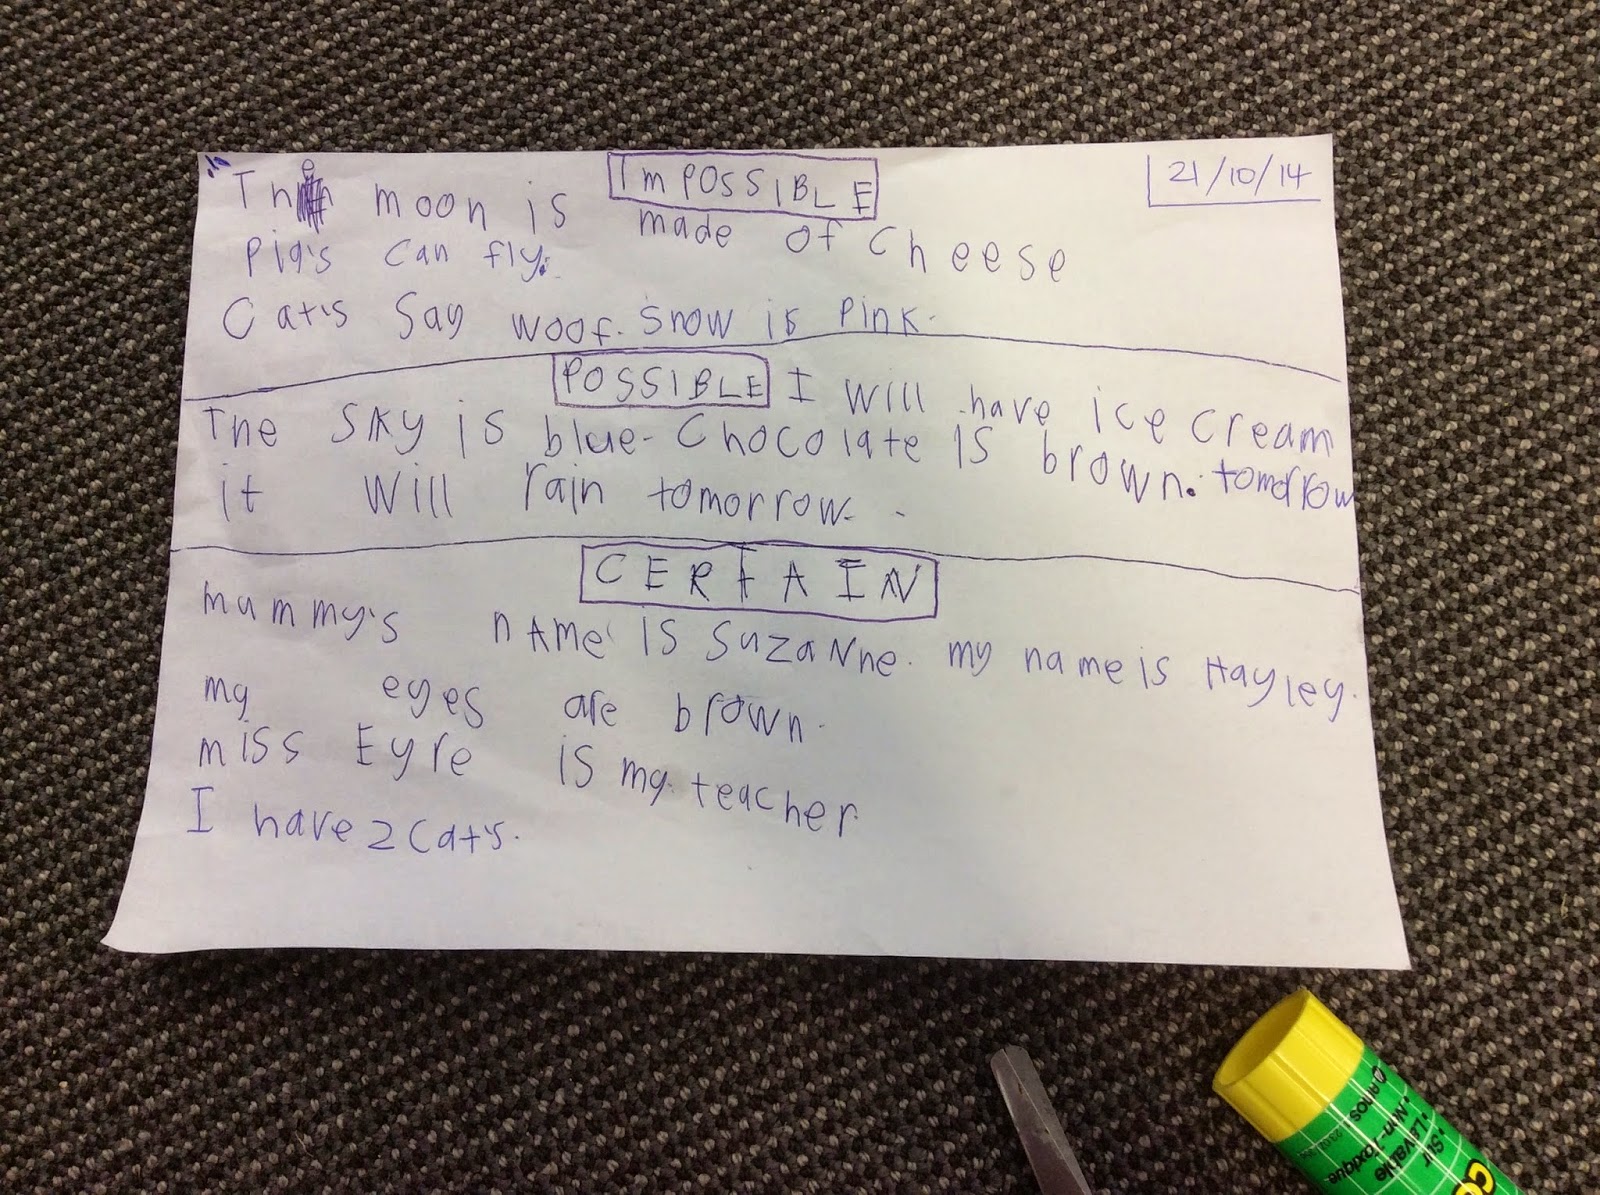 ImPOSSIBLE
21/10/14
The moon is made of cheese
pig's can fly.
Cat's Say woof. Snow is Pink.
POSSIBLE I will have ice cream
The sky is blue. Chocolate is brown. tomorrow
it will rain tomorrow.
CERTAIN
mummy's nAme is SuzaNne. my name is Hayley.
my eyes are brown.
miss Eyre is my teacher
I have 2 Cat's.